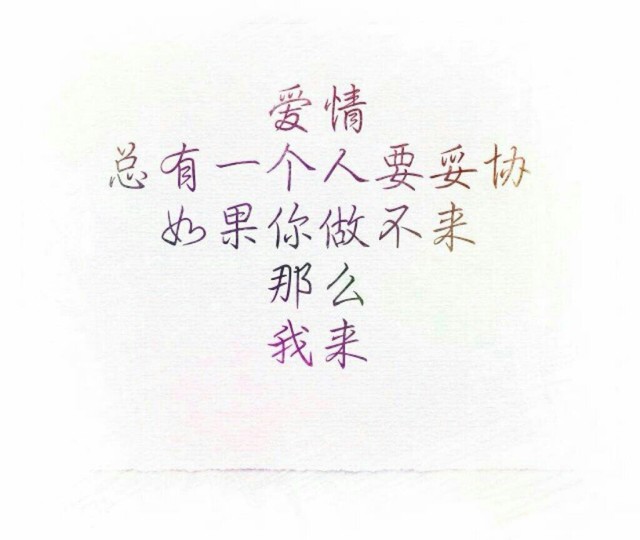 爱情
总有一个人要妥协
如果你做不来
那么
我来